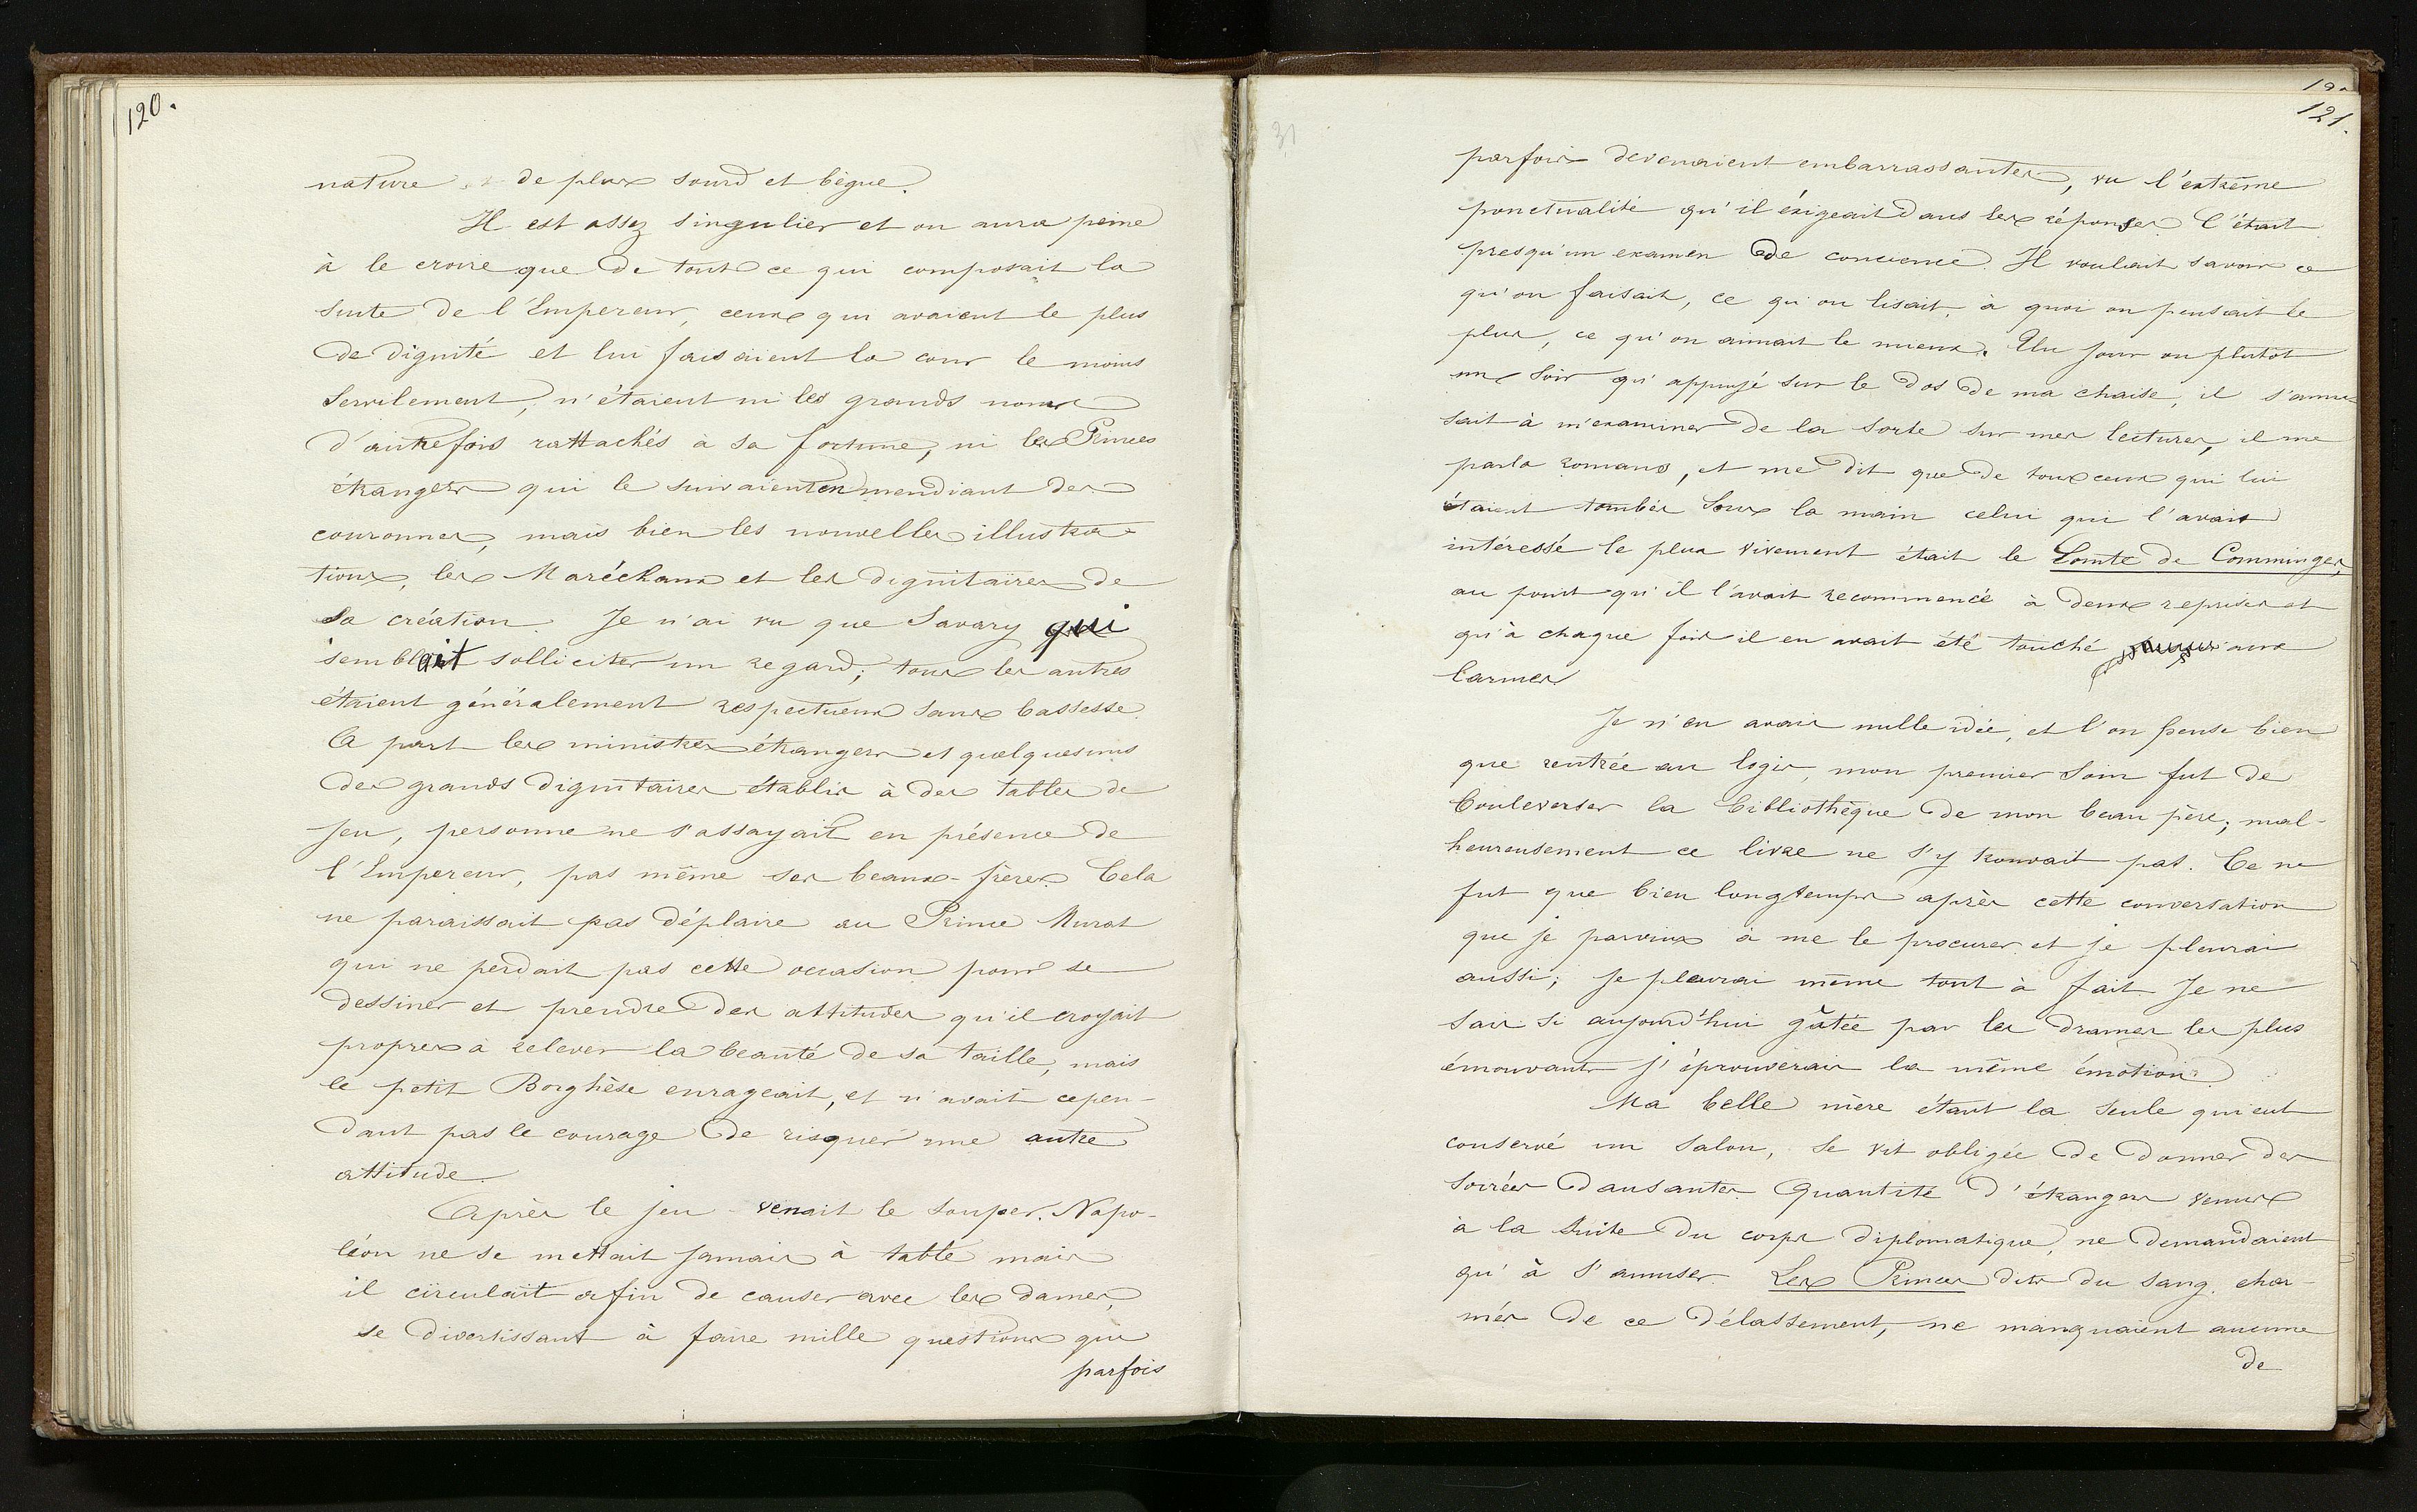 120.
nature de plus sourd et bègue.
Il est assez singulier et on aura peine
à le croire que de tout ce qui composait la
suite de l'Empereur, ceux qui avaient le plus
de dignité et lui faisaient la cour le moins
servilement, n'étaient ni les grands noms
d'autrefois rattachés à sa fortune, ni les Princes
étrangers qui le suivaient en mendiant des
couronnes, mais bien les nouvelles illustra-
tions, les Maréchaux et les dignitaires de
sa création. Je n'ai vu que Savary qui
semblait solliciter un regard; tous les autres
étaient généralement respectueux sans bassesse.
A part les ministres étrangers et quelques uns
des grands dignitaires établis à des tables de
jeu, personne ne s'assayait en présence de
l'Empereur, pas même ses beaux-frères. Cela
ne paraissait pas déplaire au Prince Murat
qui ne perdait pas cette occasion pour se
dessiner et prendre des attitudes qu'il croyait
propres à relever la beauté de sa taille, mais
le petit Borghèse enrageait, et n'avait cepen-
dant pas le courage de risquer une autre
attitude.
Après le jeu venait le souper. Napo-
léon ne se mettait jamais à table mais
il circulait afin de causer avec les dames,
se divertissant à faire mille questions qui
parfois
121.
parfois devenaient embarrassantes, vu l'extrême
ponctualité qu'il éxigeait dans les réponses. C'était
presqu'un examen de concience. Il voulait savoir ce
qu'on faisait, ce qu'on lisait, à quoi on pensait le
plus, ce qu'on aimait le mieux. Un jour ou plutôt
un soir qu'appuyé sur le dos de ma chaise, il s'amu-
sait à m'examiner de la sorte sur mes lectures, il me
parla romans, et me dit que de tous ceux qui lui
étaient tombés sous la main celui qui l'avait
intéressé le plus vivement était le Comte de Comminges,
au point qu'il l'avait recommencé à deux reprises et
qu'à chaque fois il en avait été touché aux
larmes.
Je n'en avais nulle idée, et l'on pense bien
que rentrée au logis, mon premier soin fut de
bouleverser la bibliothèque de mon beau père; mal-
heureusement ce livre ne s'y trouvait pas. Ce ne
fut que bien longtemps après cette conversation
que je parvins à me le procurer et je pleurai
aussi; je pleurai même tout à fait. Je ne
sais si aujourd'hui gâtée par les drames les plus
émouvants j'éprouverais la même émotion.
Ma belle mère étant la seule qui eut
conservé un salon, se vit obligée de donner des
soirées dansantes. Quantité d'étrangers venus
à la suite du corps diplomatique, ne demandaient
qu'à s'amuser. Les Princes dits du sang, char-
més de ce délassement, ne manquaient aucune
de